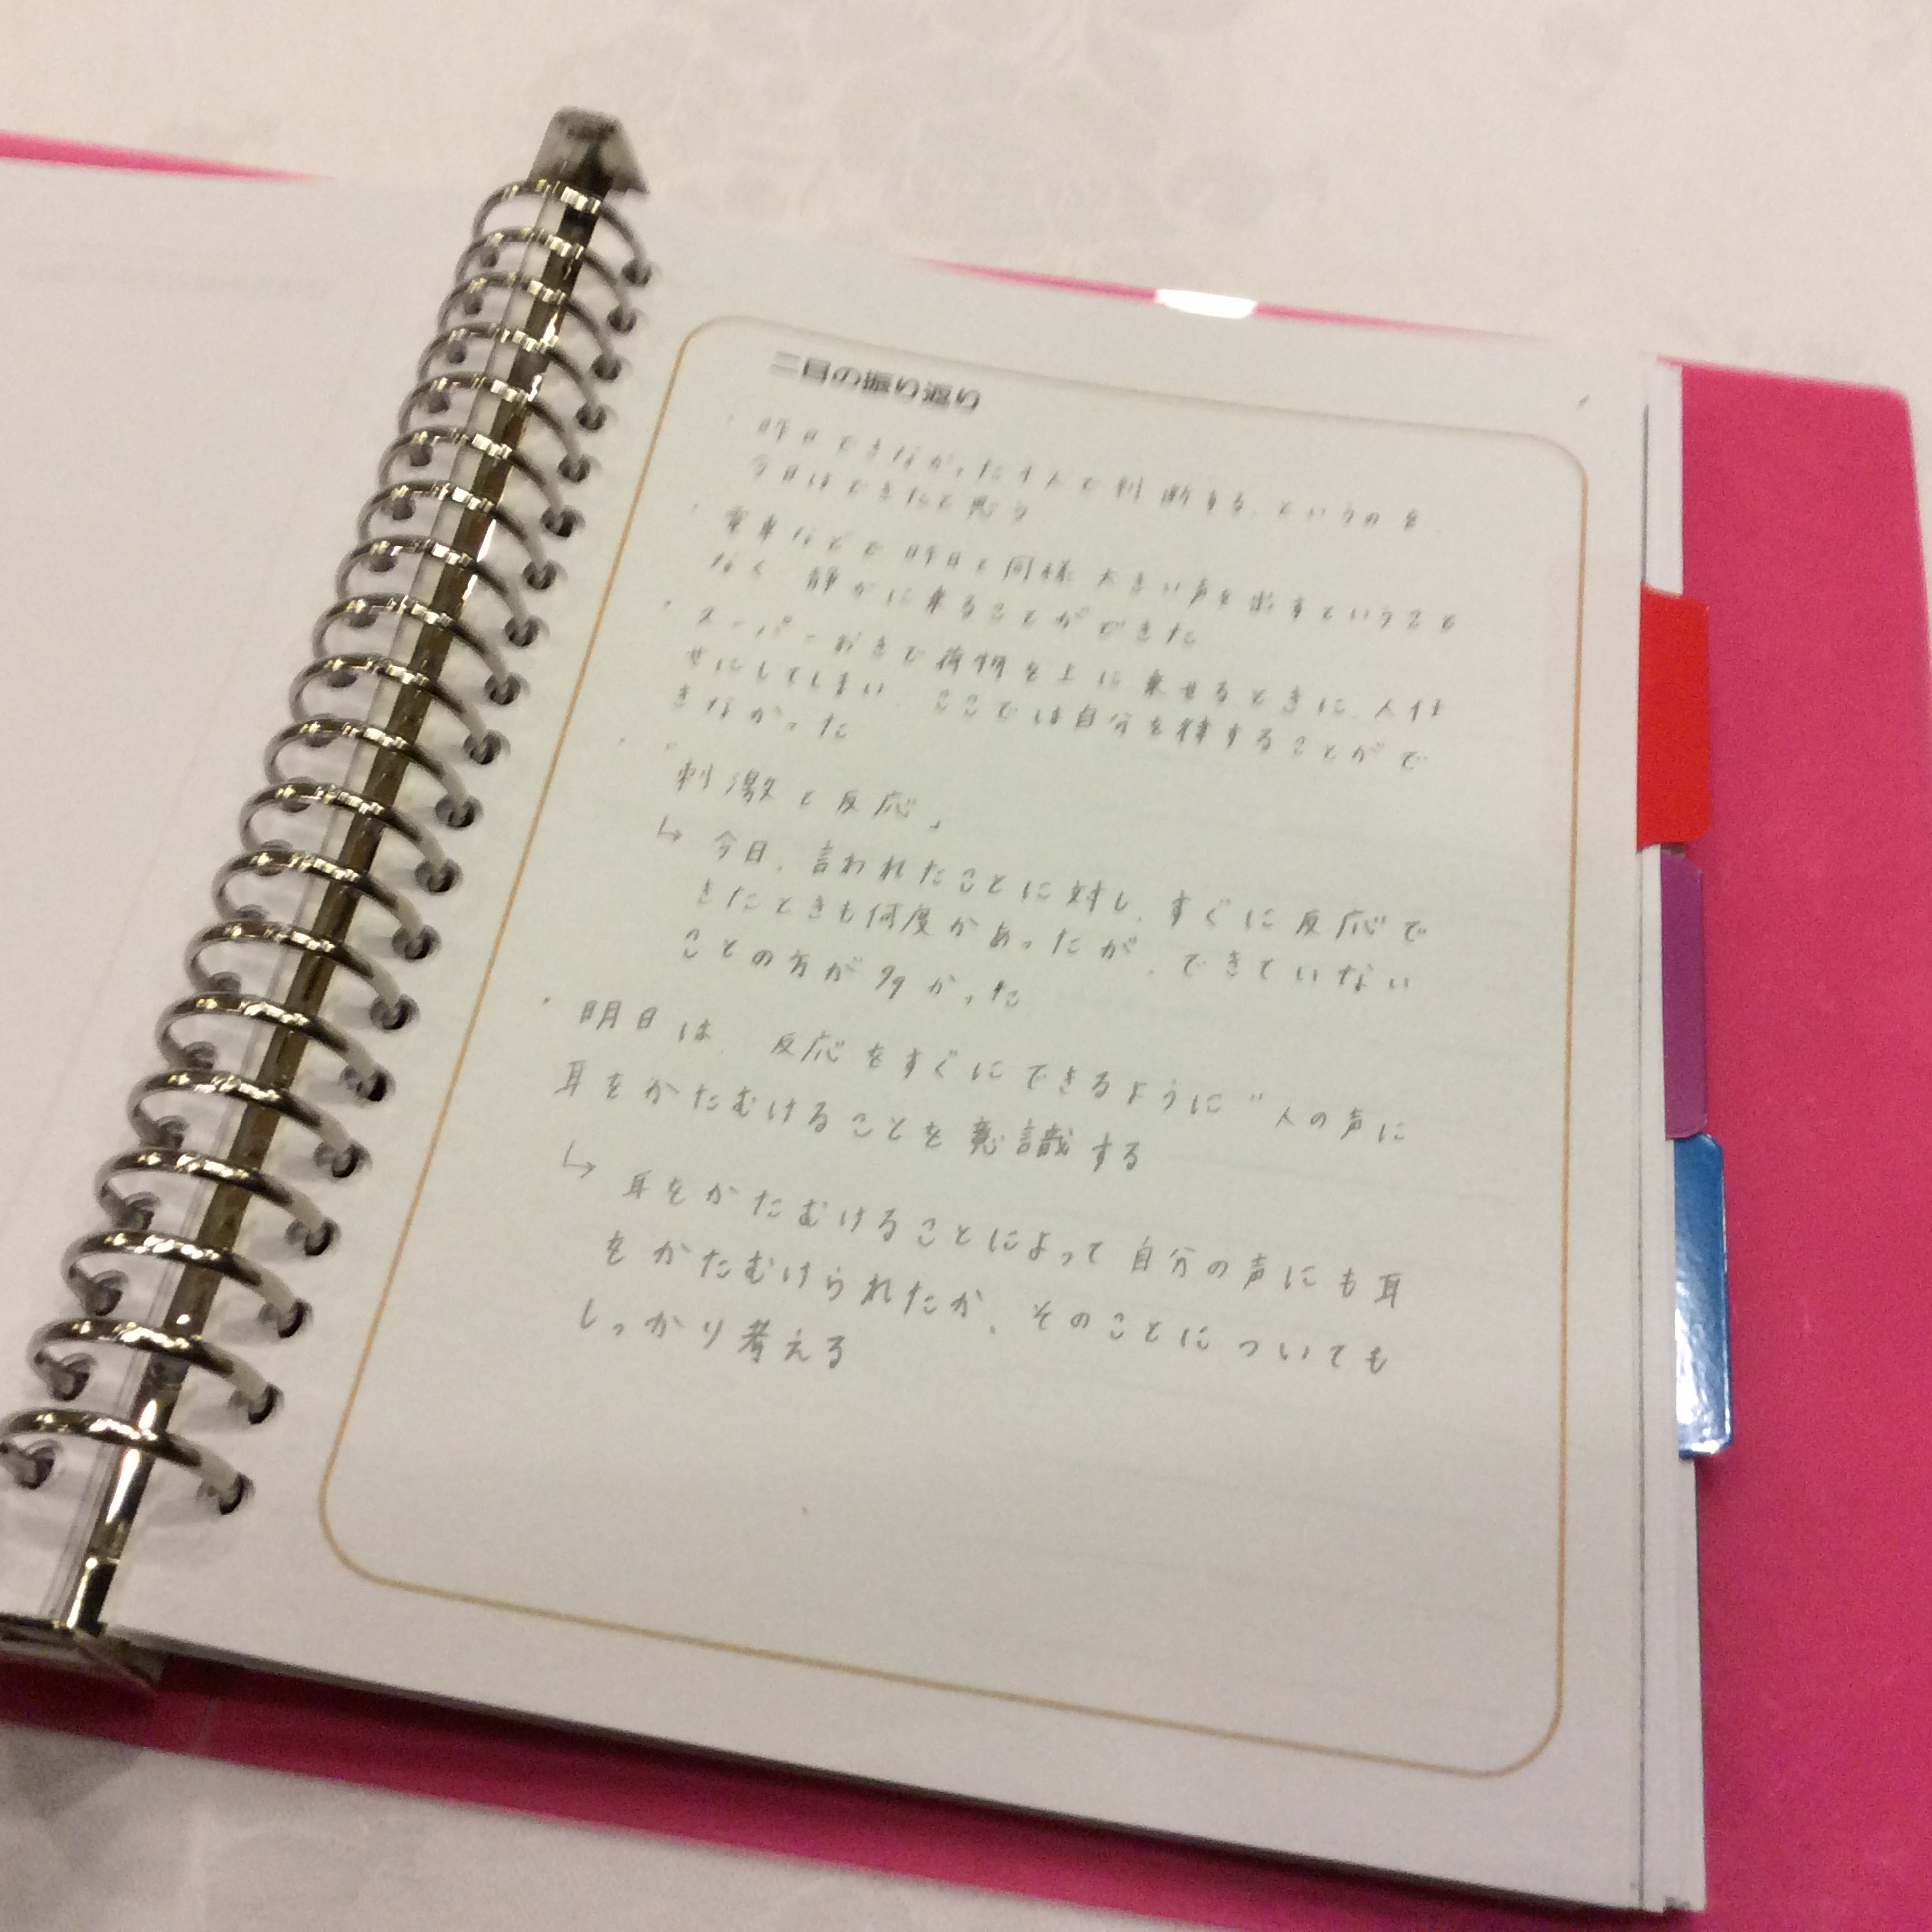 二日の振り返り
・昨日できなかった4人で判断する、というのを、
今日はできたと思う
・電車などで昨日と同様大きい声を出すということ
なく静かに乗ることができた
・スーパーおきで荷物を上に乗せるときに、人任
せにしてしまい、ここでは自分を律することがで
きなかった
・「刺激と反応」
↳ 今日、言われたことに対し、すぐに反応で
きたときも何度かあったが、できていない
ことの方が多かった
・明日は、反応をすぐにできるように"人の声に
耳をかたむけることを意識する
↳ 耳をかたむけることによって自分の声にも耳
をかたむけられたか、そのことについても
しっかり考える